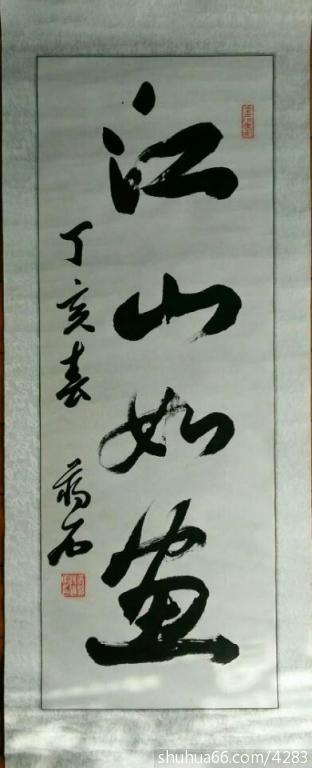 江山如画
丁亥春
石
shuhua66.com/4283